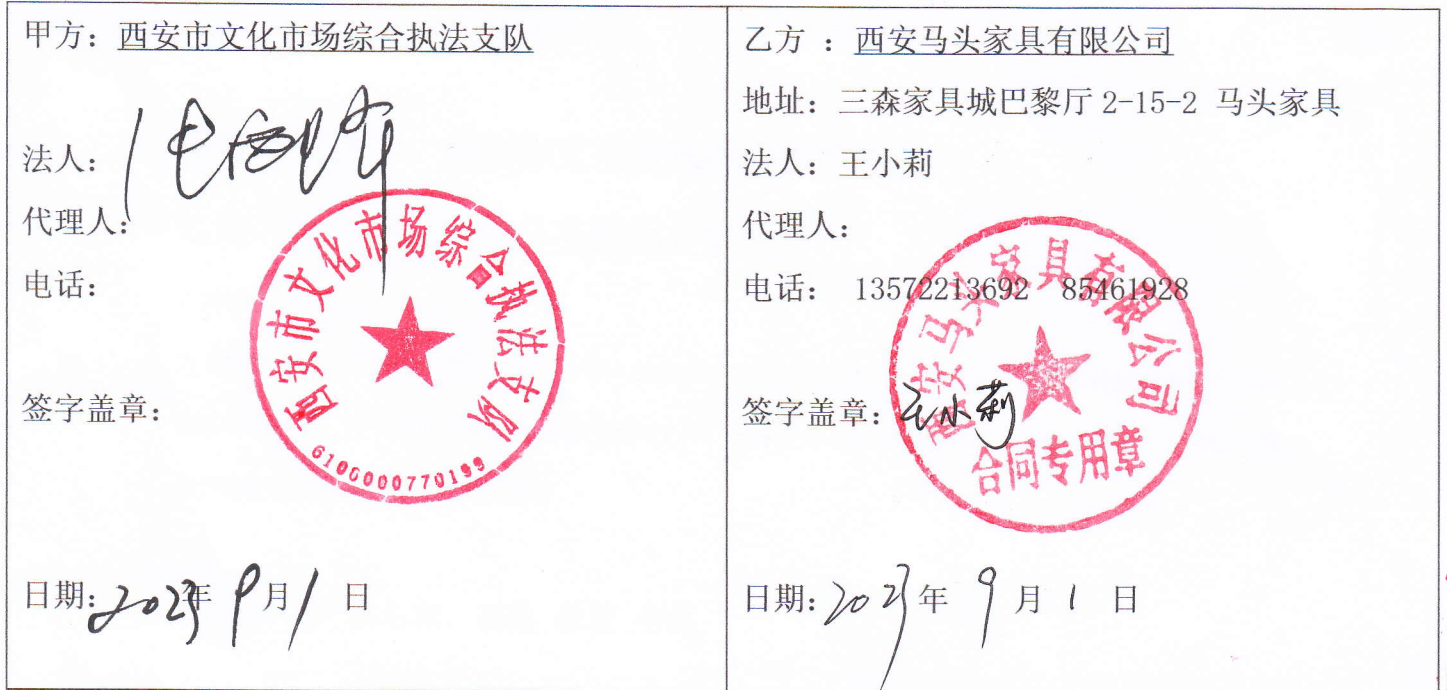 甲方：西安市文化市场综合执法支队
法人：
代理人：
电话：
西安市文化市场综合执法支队
6100000770199
签字盖章：
日期：2023年9月1日
乙方 ：西安马头家具有限公司
地址：三森家具城巴黎厅 2-15-2 马头家具
法人：王小莉
代理人：
电话： 13572213692 85461928
西安马头家具有限公司
合同专用章
签字盖章：王小莉
日期：2023年 9 月 1 日